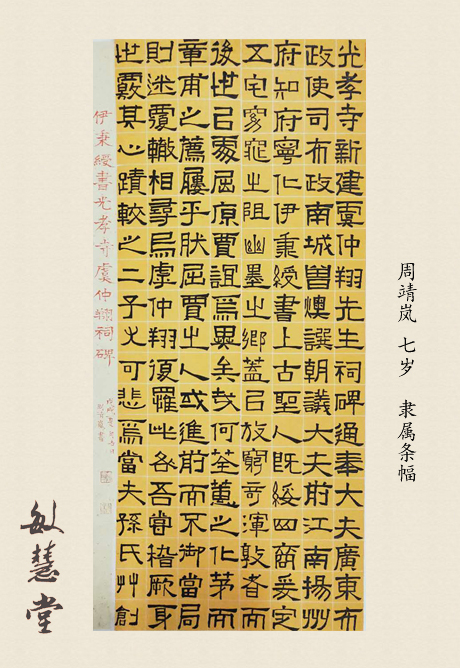 周靖岚 七岁 隶属条幅
光孝寺新建虞仲翔先生祠碑通奉大夫廣東布
政使司布政南城曾燠譔朝議大夫前江南揚州
府知府寧化伊秉綬書上古聖人既綏四商爰定
五宅竄之阻幽墨之鄉蓋以放窮奇渾敦者而
後世以處屈原賈誼為異矣哉何荃蕙之化茅而
章甫之薦屨乎肰屈賈之人或進前而不御當局
則迷覆轍相尋烏虖仲翔復罹此咎吾嘗稽厥身
世覈其心蹟較之二子尤可悲焉當夫孫氏艸創
伊秉綬書光孝寺虞仲翔祠碑
敏慧堂